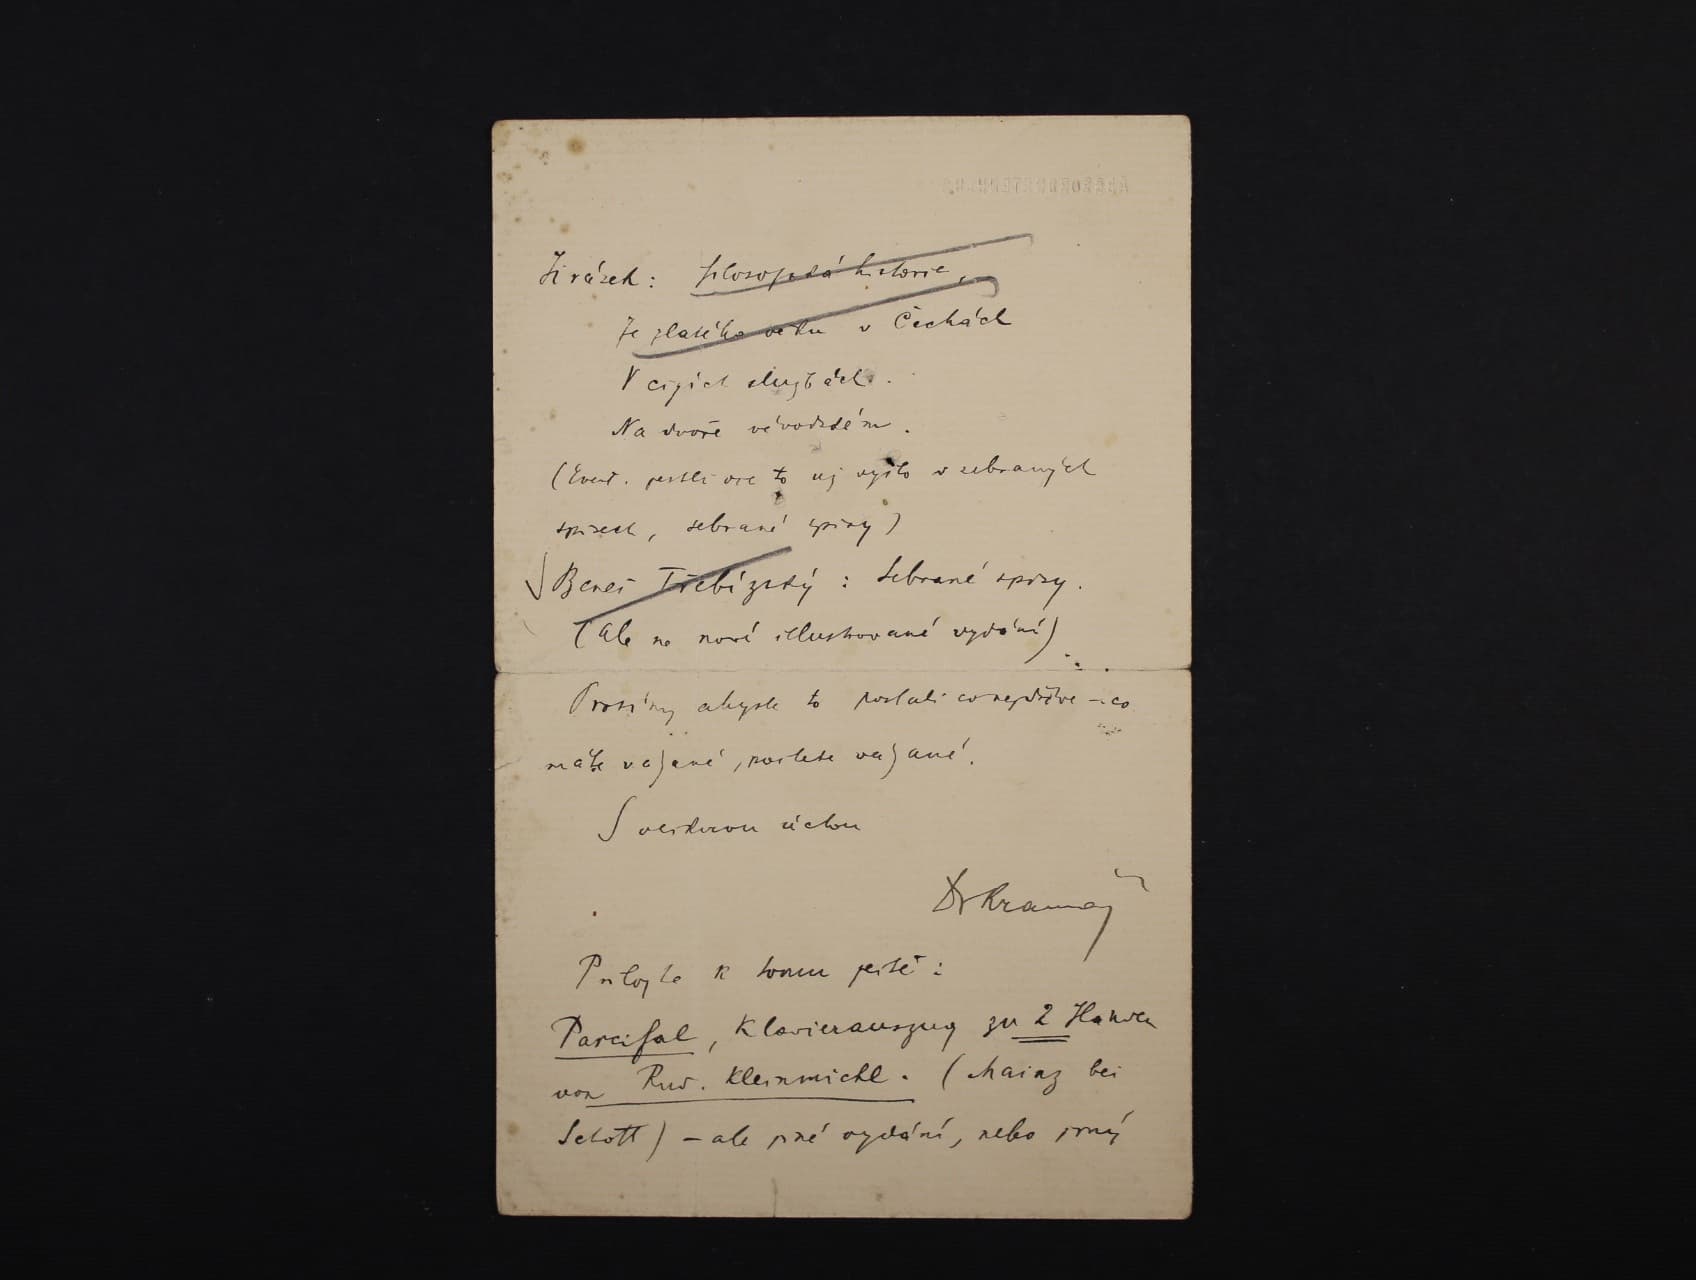 ABGEORDNETENHAUS
Jirásek: filosofská historie,
Ze zlatého věku v Čechách
V cizích službách.
Na dvoře vévodském.
(Event. jestli vše to už vyšlo v sebraných
spisech, sebrané spisy)
Beneš Třebízský: Sebrané spisy.
(ale ne nové illustrované vydání)
Prosím, abyste to poslali co nejdříve – co
máte vázané, pošlete vázané.
S veškerou úctou
Dr Kramář
Přiložte k tomu ještě:
Parcifal, Klavierauszug zu 2 Händen
von Rud. Kleinmichl. (Mainz bei
Schott) – ale jiné vydání, nebo jiný